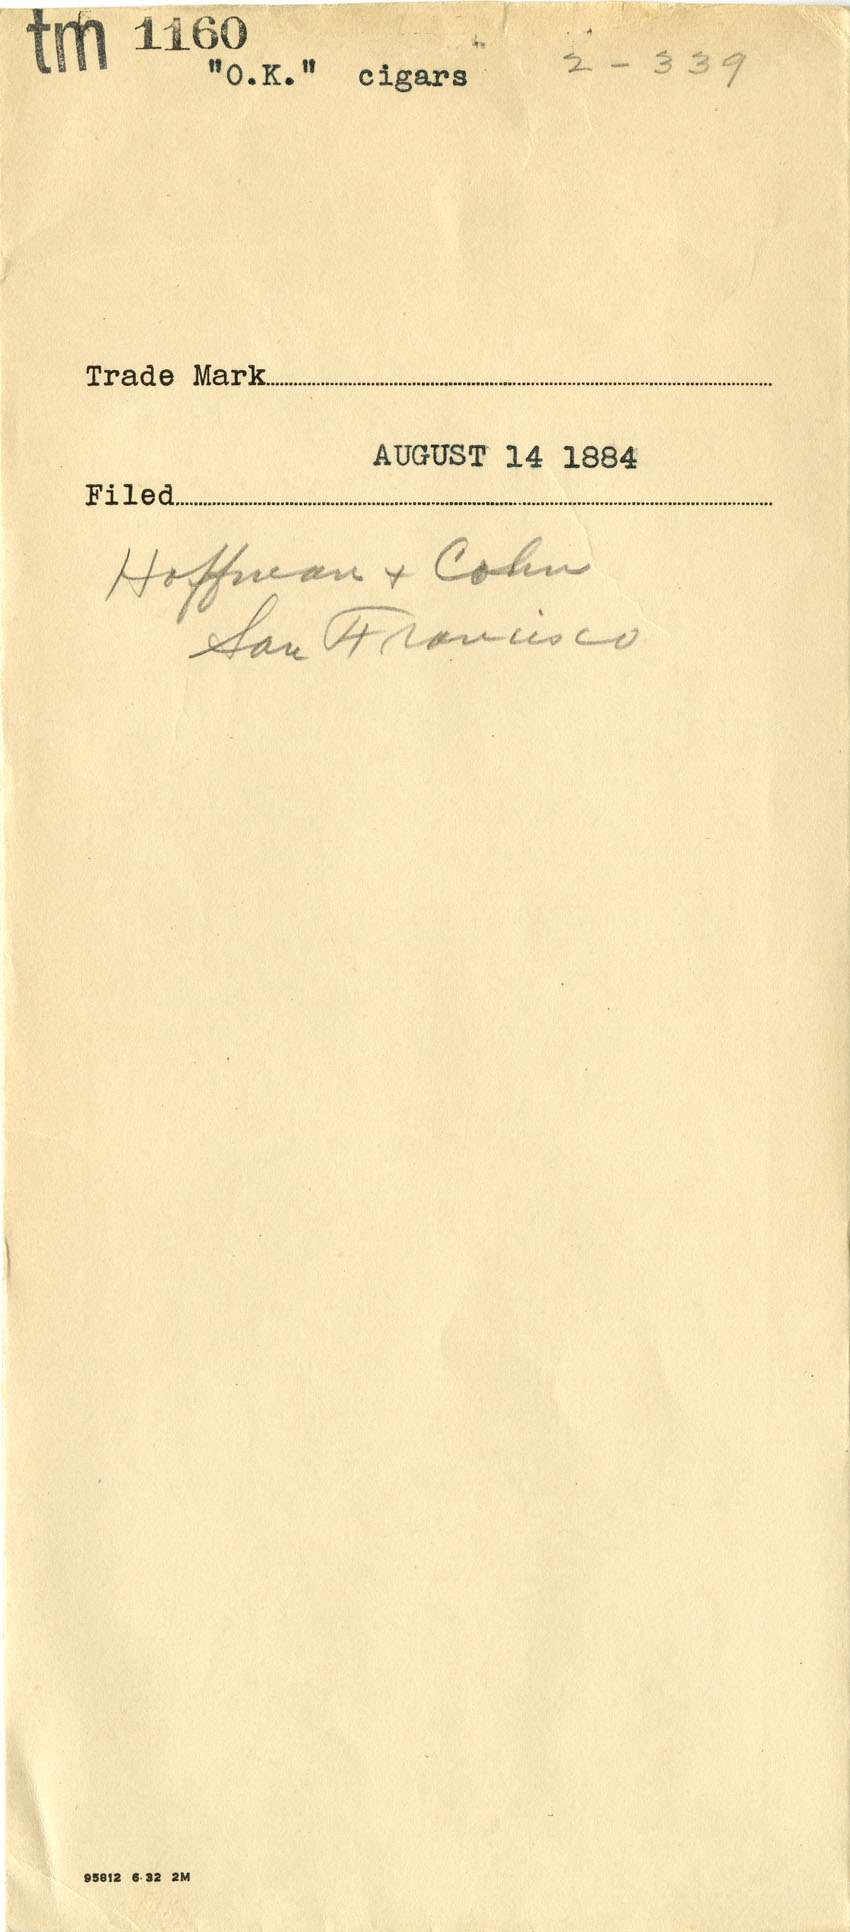 tm 1160
"O.K." cigars 2-339
Trade Mark
AUGUST 14 1884
Filed
Hoffman + Cohn
San Francisco
95812 6-32 2M